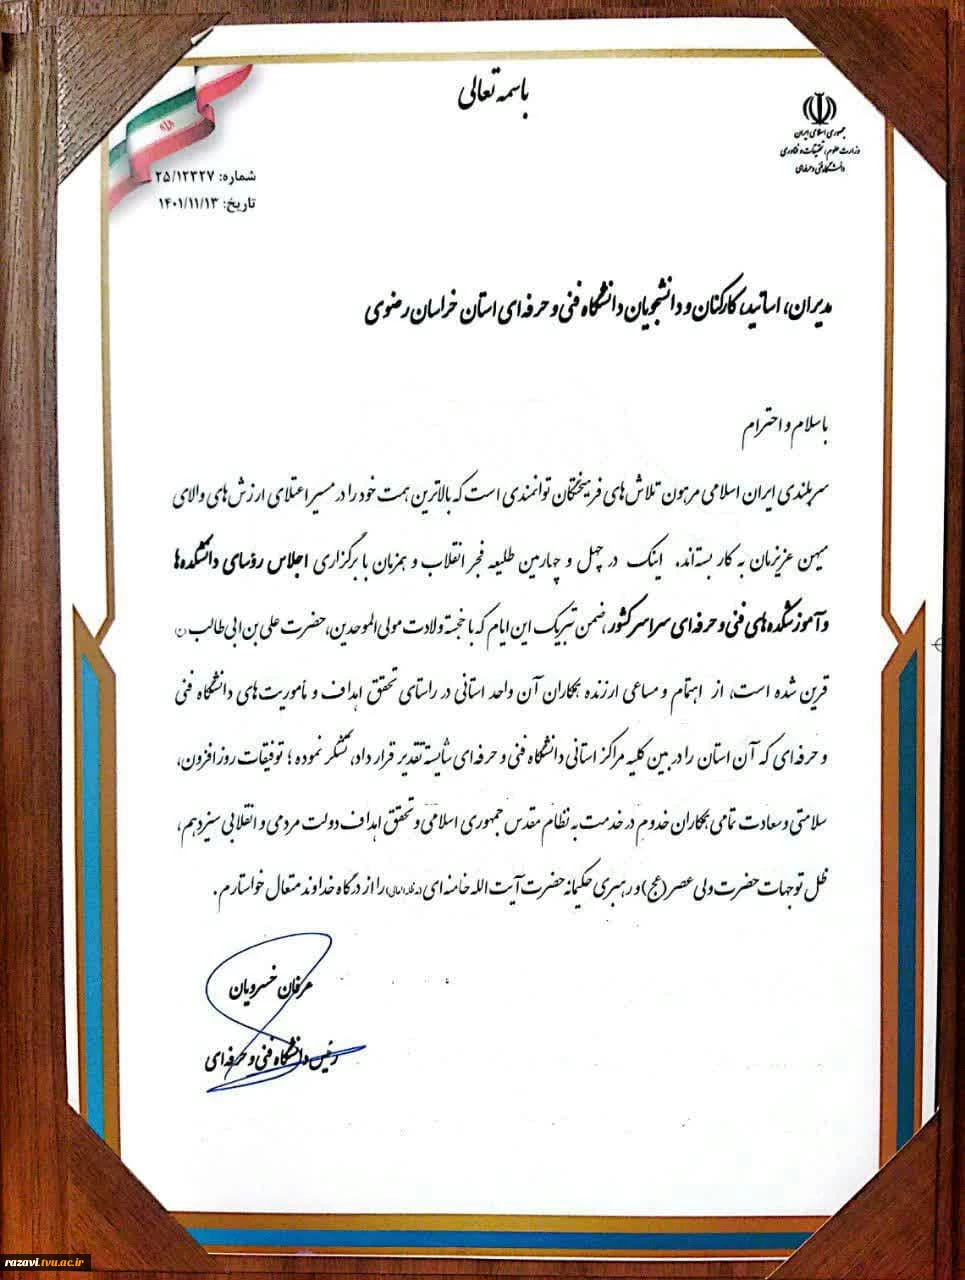 باسمه تعالی
جمهوری اسلامی ایران
وزارت علوم، تحقیقات و فناوری
دانشگاه فنی و حرفه‌ای
شماره: ۲۵/۱۲۳۲۷
تاریخ: ۱۴۰۱/۱۱/۱۳
مدیران، اساتید، کارکنان و دانشجویان دانشگاه فنی و حرفه ای استان خراسان رضوی
با سلام و احترام
سربلندی ایران اسلامی مرهون تلاش های فرهیختگان توانمندی است که بالاترین همت خود را در مسیر اعتلای ارزش های والای
میهن عزیزمان به کار بسته‌اند. اینک در چهل و چهارمین طلیعه فجر انقلاب و همزمان با برگزاری اجلاس رؤسای دانشکده‌ها
و آموزشکده‌های فنی و حرفه ای سراسر کشور، ضمن تبریک این ایام که با خجسته ولادت مولی الموحدین، حضرت علی بن ابی طالب (ع)
قرین شده است، از اهتمام و مساعی ارزنده همکاران آن واحد استانی در راستای تحقق اهداف و مأموریت های دانشگاه فنی
و حرفه ای که آن استان را در بین کلیه مراکز استانی دانشگاه فنی و حرفه ای شایسته تقدیر قرار داد، تشکر نموده ؛ توفیقات روز افزون،
سلامتی و سعادت تمامی همکاران خدوم در خدمت به نظام مقدس جمهوری اسلامی و تحقق اهداف دولت مردمی و انقلابی سیزدهم،
ظل توجهات حضرت ولی عصر (عج) و رهبری حکیمانه حضرت آیت الله خامنه ای (مدظله العالی) را از درگاه خداوند متعال خواستارم.
عرفان خسرویان
رئیس دانشگاه فنی و حرفه ای
razavi.tvu.ac.ir